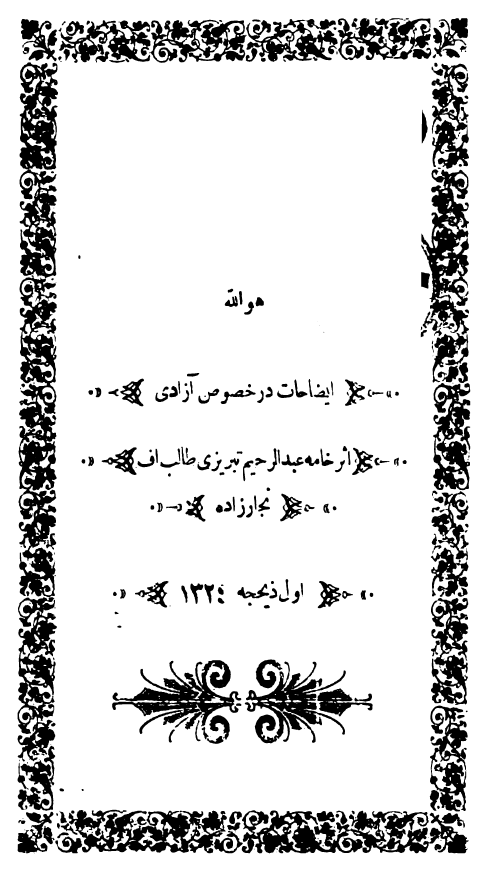 هو الله
ایضاحات در خصوص آزادی
اثر خامه عبدالرحیم تبریزی طالب اف
نجارزاده
اول ذیحجه ١٣٢٤